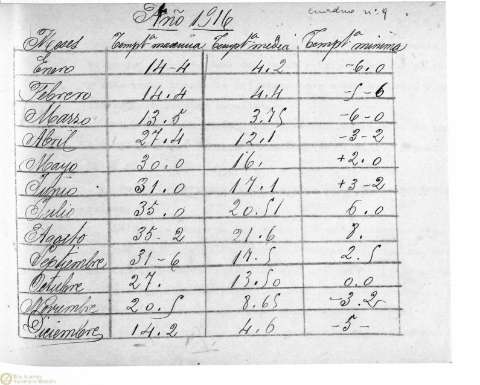 Año 1916
cuadro nº 9
Meses Tempt.ª máxima Tempt.ª media Tempt.ª mínima
Enero 14-4 4.2 -6.0
Febrero 14.4 4.4 -5-6
Marzo 13.5 3.75 -6-0
Abril 27.4 12.1 -3-2
Mayo 30.0 16. +2.0
Junio 31.0 17.1 +3-2
Julio 35.0 20.51 6.0
Agosto 35-2 21.6 8.
Septiembre 31-6 17.5 2.5
Octubre 27. 13.50 0.0
Novembre 20.5 8.65 -3.2
Diciembre 14.2 4.6 -5-